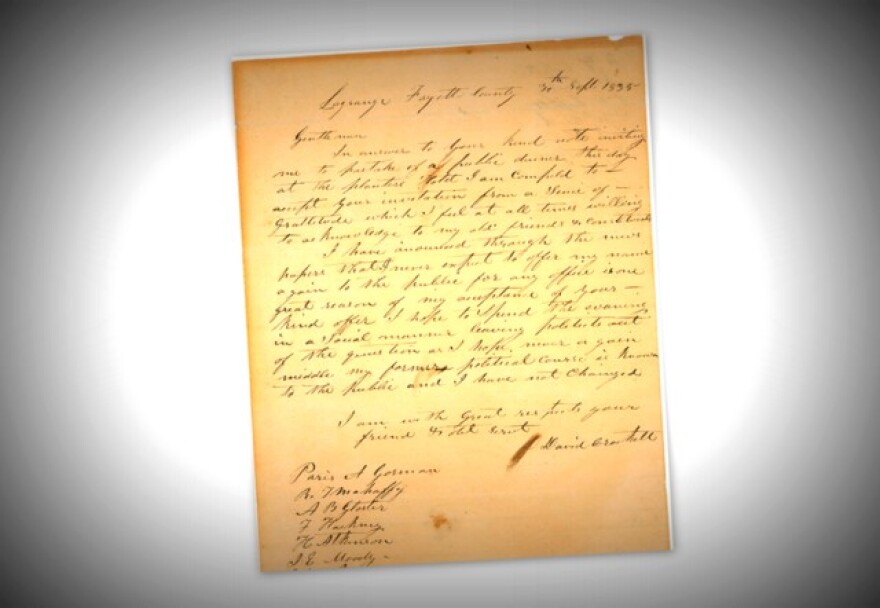 Lagrange Fayett County 30th Sept. 1835
Gentlemen
In answer to your kind note inviting
me to partake of a public dinner this day
at the planters Hotel I am compeld to —
accept your invitation from a Sence of —
Grattitude which I feel at all times willing
to acknowledge to my old friends &
I have anounced through the news
papers that I never expect to offer my name
again to the public for any office is one
great reason of my acceptance of your —
kind offer I hope to Spend the evaning
in a Social manner leaving politicks out
of the question as I hope never again
middle my former political course is known
to the public and I have not Changed
I am with Great respects your
friend & obt Servt
David Crockett
Paris A Gorman
R. T Mahaffy
A B Gloster
F Hocking
H Atkinson
J E Moody